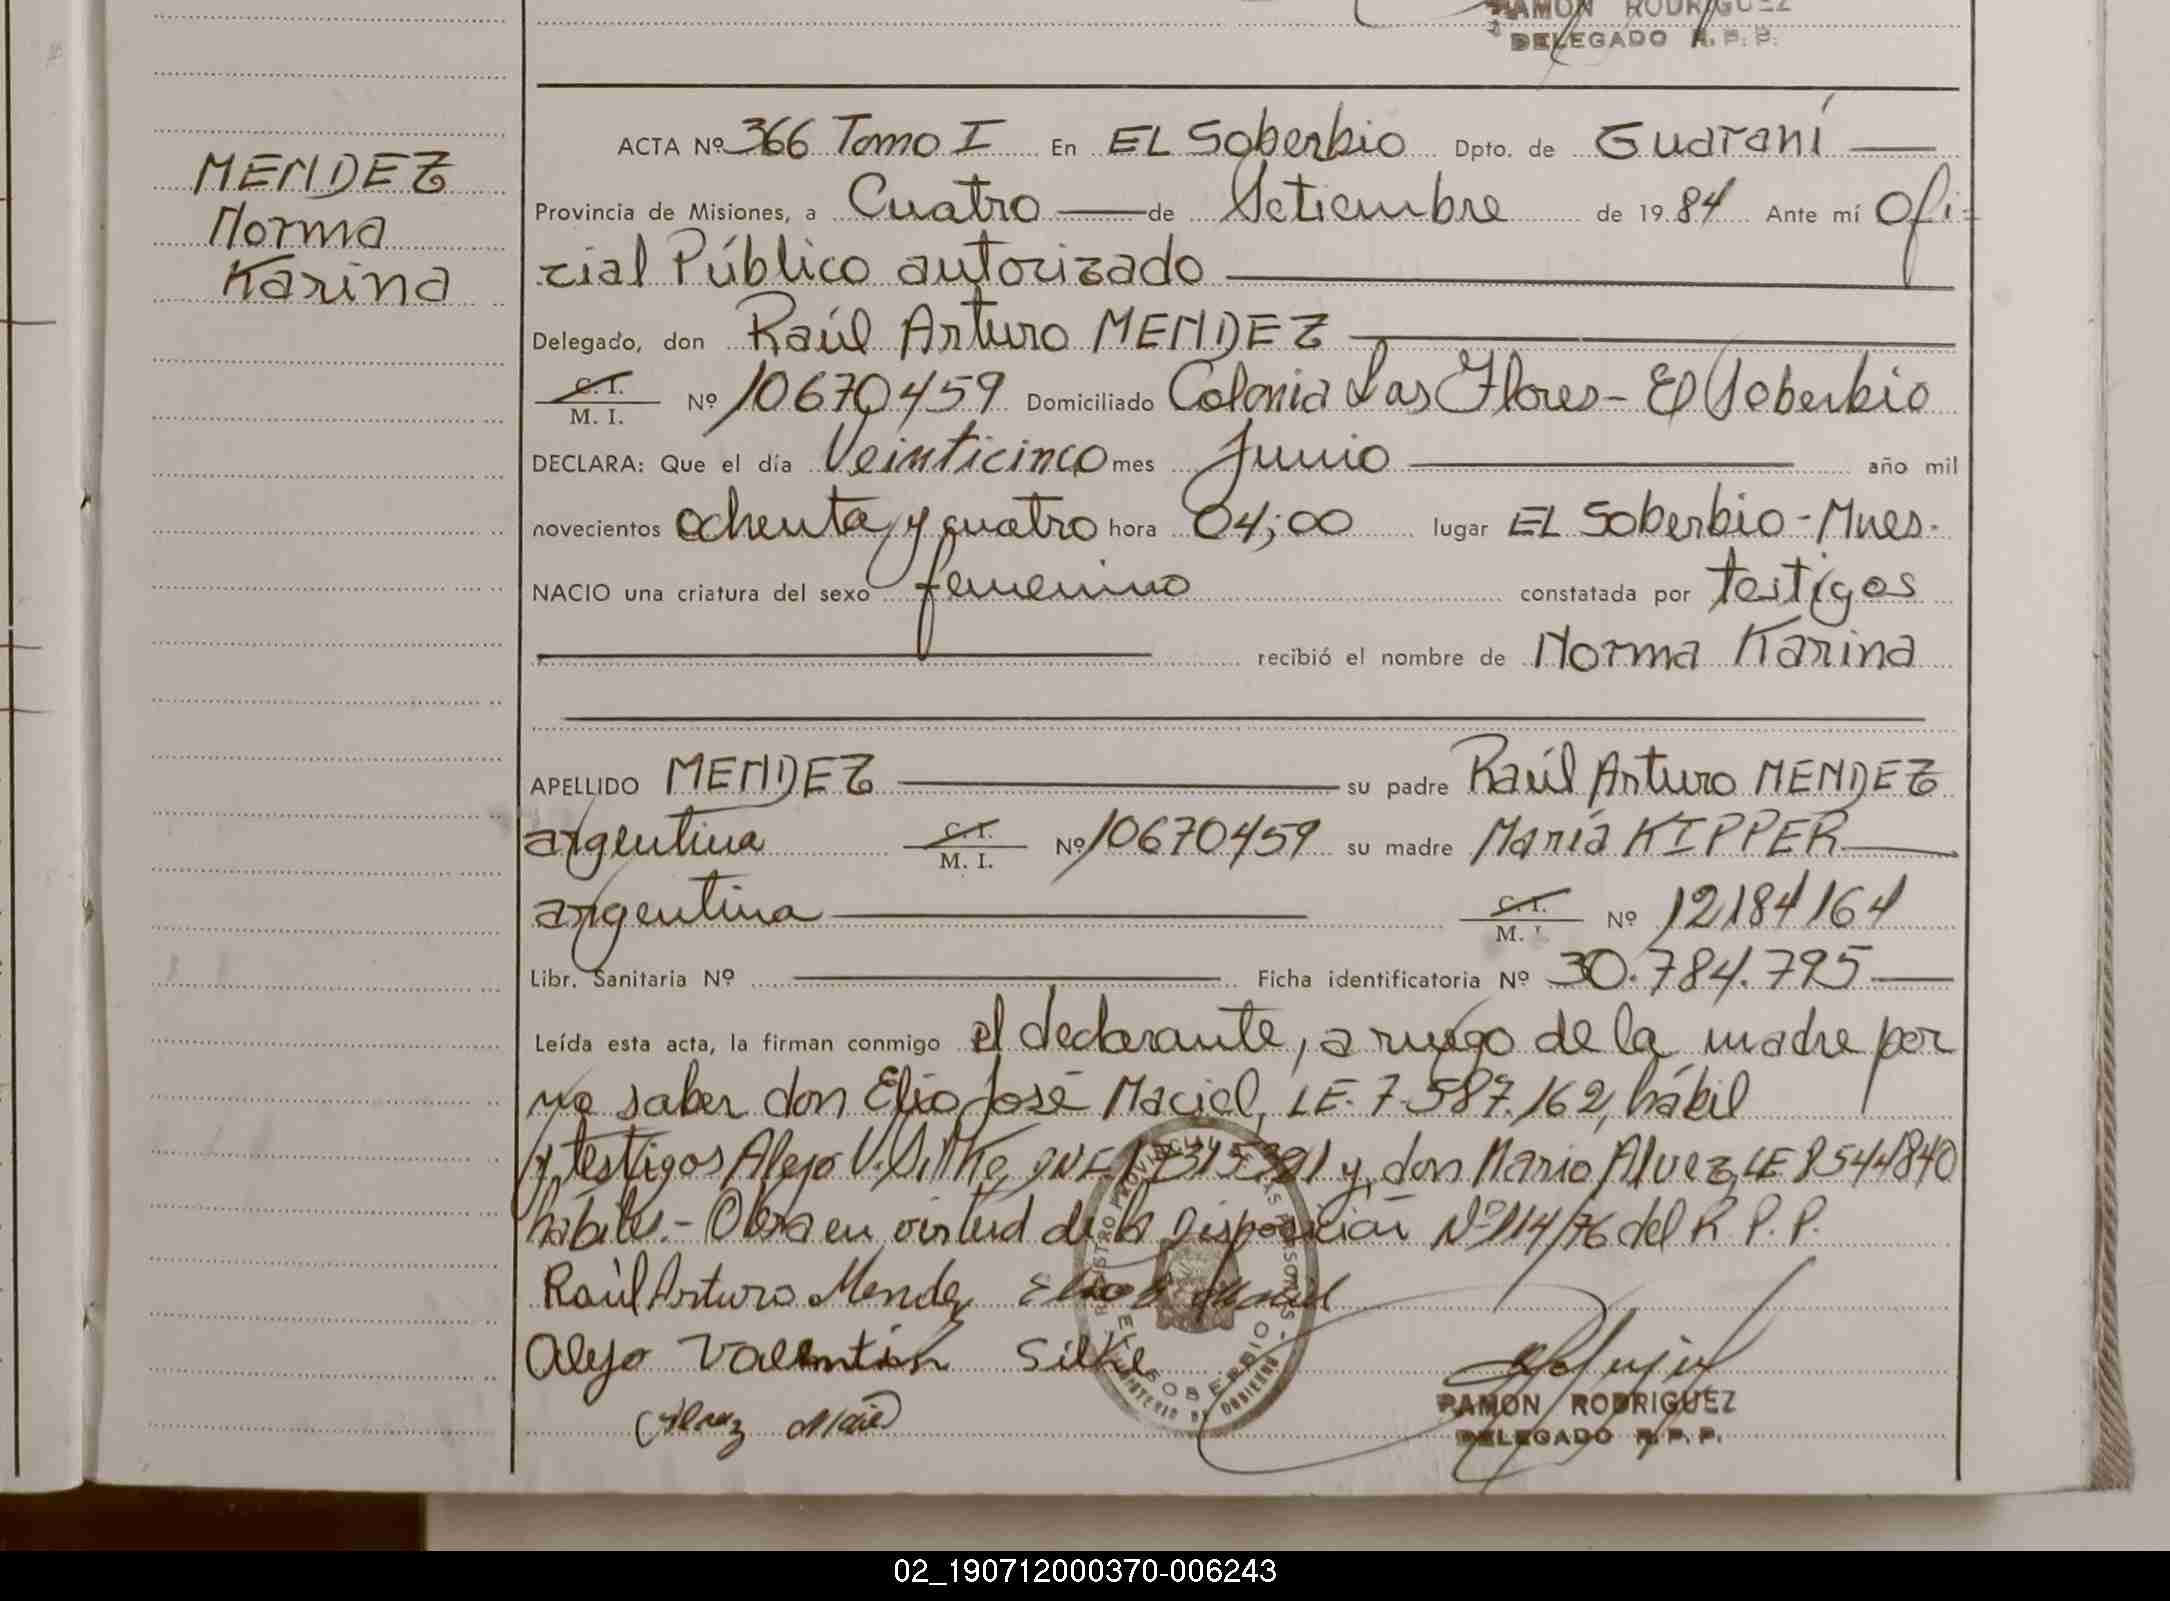 RAMON RODRIGUEZ
DELEGADO R. P. P.
MENDEZ
Norma
Karina
ACTA Nº 366 Tomo I En EL Soberbio Dpto. de Guaraní
Provincia de Misiones, a Cuatro de Setiembre de 1984 Ante mí Ofi-
cial Público autorizado
Delegado, don Raúl Arturo MENDEZ
C. I.
M. I. Nº 10670459 Domiciliado Colonia Las Flores - El Soberbio
DECLARA: Que el día Veinticinco mes Junio año mil
novecientos ochenta y cuatro hora 04;00 lugar EL Soberbio - Mnes.
NACIO una criatura del sexo femenino constatada por testigos
recibió el nombre de Norma Karina
APELLIDO MENDEZ su padre Raúl Arturo MENDEZ
argentina C. I. M. I. Nº 10670459 su madre María KIPPER
argentina C. I. M. I. Nº 12184164
Libr. Sanitaria Nº Ficha identificatoria Nº 30.784.795
Leída esta acta, la firman conmigo el declarante, a ruego de la madre por
no saber don Elio José Maciel, LE. 7.587.162, hábil
y testigos Alejo V. Silke, y don Mario Alvez LE 8544840
hábiles.- Obra en virtud de la Disposición Nº 114/76 del R. P. P.
Raúl Arturo Mendez Elio J. Maciel
Alejo Valentin Silke
REGISTRO PROVINCIAL DE LAS PERSONAS
EL SOBERBIO
MINISTERIO DE GOBIERNO
RAMON RODRIGUEZ
DELEGADO R. P. P.
02_190712000370-006243